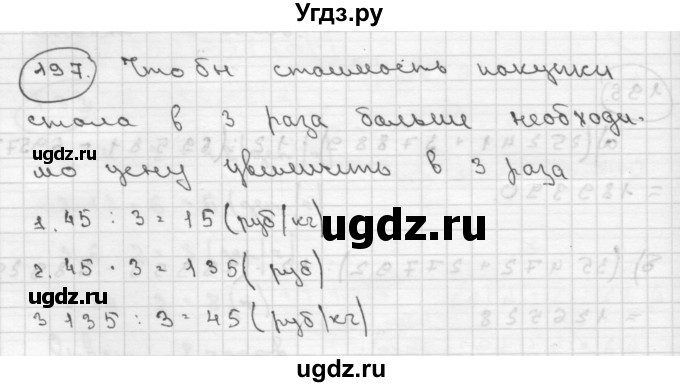 Угдз.ру
197. Чтобы стоимость покупки
стала в 3 раза больше необходи-
мо цену увеличить в 3 раза
1. 45 : 3 = 15 (руб/кг)
2. 45 · 3 = 135 (руб)
3 135 : 3 = 45 (руб/кг)
ugdz.ru
ugdz.ru
ugdz.ru
ugdz.ru
ugdz.ru
ugdz.ru